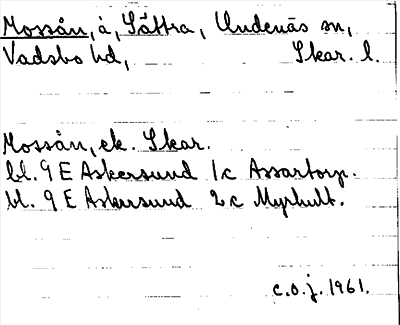 Mossån, å, Sätra, Undenäs sn,
Vadsbo hd, Skar. l.
Mossån, ek. Skar.
bl. 9 E Askersund 1c Assartorp.
bl. 9 E Askersund 2c Myrhult.
c.o.j. 1961.